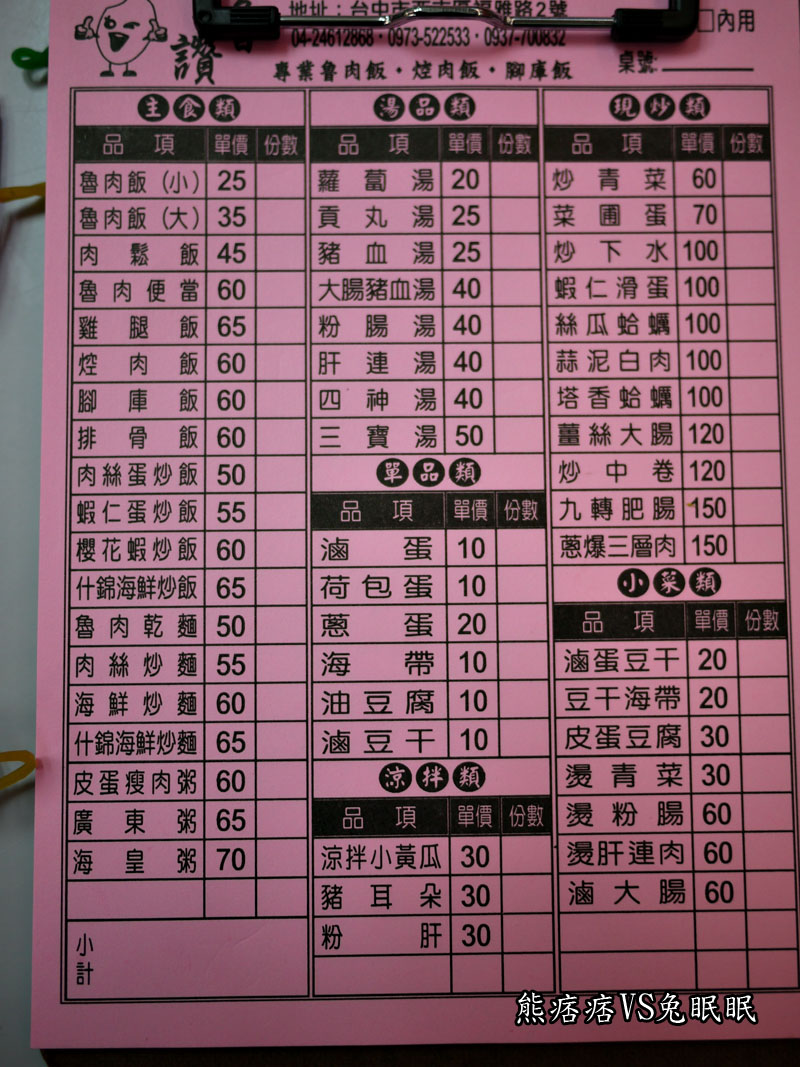 讚
地址：台中市
福雅路2號
04-24612868·0973-522533·0937-700832
專業魯肉飯·焢肉飯·腳庫飯
□內用
桌號:
主食類
品項 單價 份數
魯肉飯(小) 25
魯肉飯(大) 35
肉鬆飯 45
魯肉便當 60
雞腿飯 65
焢肉飯 60
腳庫飯 60
排骨飯 60
肉絲蛋炒飯 50
蝦仁蛋炒飯 55
櫻花蝦炒飯 60
什錦海鮮炒飯 65
魯肉乾麵 50
肉絲炒麵 55
海鮮炒麵 60
什錦海鮮炒麵 65
皮蛋瘦肉粥 60
廣東粥 65
海皇粥 70
小計
湯品類
品項 單價 份數
蘿蔔湯 20
貢丸湯 25
豬血湯 25
大腸豬血湯 40
粉腸湯 40
肝連湯 40
四神湯 40
三寶湯 50
單品類
品項 單價 份數
滷蛋 10
荷包蛋 10
蔥蛋 20
海帶 10
油豆腐 10
滷豆干 10
涼拌類
品項 單價 份數
涼拌小黃瓜 30
豬耳朵 30
粉肝 30
現炒類
品項 單價 份數
炒青菜 60
菜圃蛋 70
炒下水 100
蝦仁滑蛋 100
絲瓜蛤蠣 100
蒜泥白肉 100
塔香蛤蠣 100
薑絲大腸 120
炒中卷 120
九轉肥腸 150
蔥爆三層肉 150
小菜類
品項 單價 份數
滷蛋豆干 20
豆干海帶 20
皮蛋豆腐 30
燙青菜 30
燙粉腸 60
燙肝連肉 60
滷大腸 60
熊痞痞VS兔眠眠